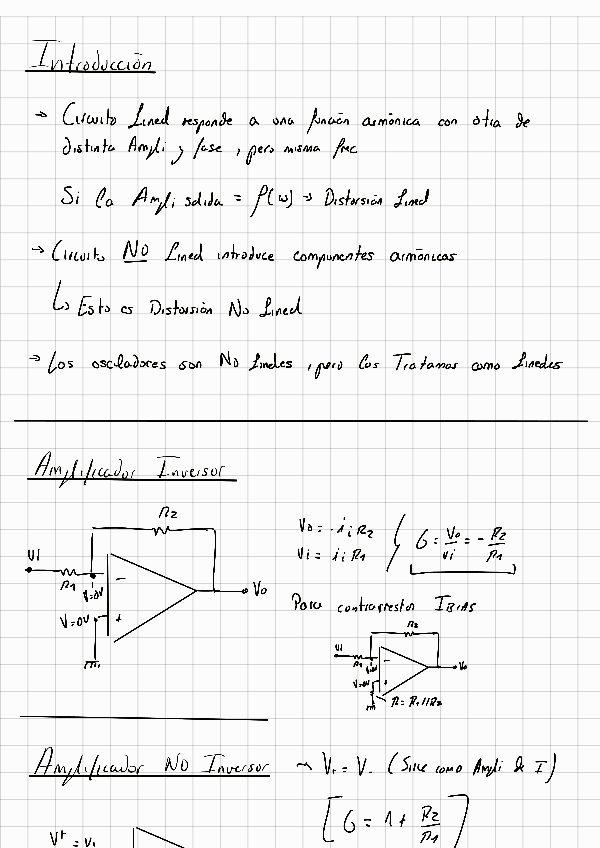 Introducción
→ Circuito Lineal responde a una función armónica con otra de
distinta Ampli y fase, pero misma frec
Si la Ampli salida = f(ω) → Distorsión Lineal
→ Circuito NO Lineal introduce componentes armónicas
↳ Esto es Distorsión No Lineal
→ Los osciladores son No lineales, pero los Tratamos como Lineales
Amplificador Inversor
R2
Vi
R1
V=0V
V=0V
-
+
Vo
Vo = -ii R2
Vi = ii R1
G = Vo/Vi = -R2/R1
Para contrarrestar IBIAS
R2
Vi
R1
V=0V
V=0V
-
+
Vo
R = R1//R2
Amplificador NO Inversor
→ V+ = V- (Sirve como Ampli de I)
[G = 1 + R2/R1]
V+ = Vi